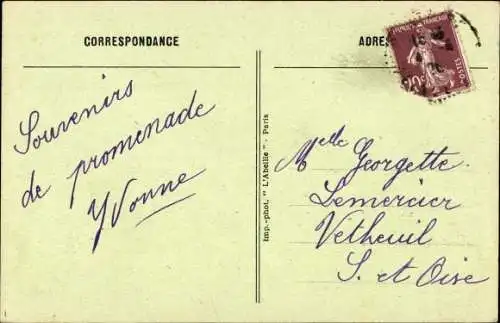 CORRESPONDANCE
Souvenirs
de promenade
Yvonne
Imp.-phot. "L'Abeille" - Paris
ADRES
Melle Georgette
Lemercier
Vetheuil
S. et Oise